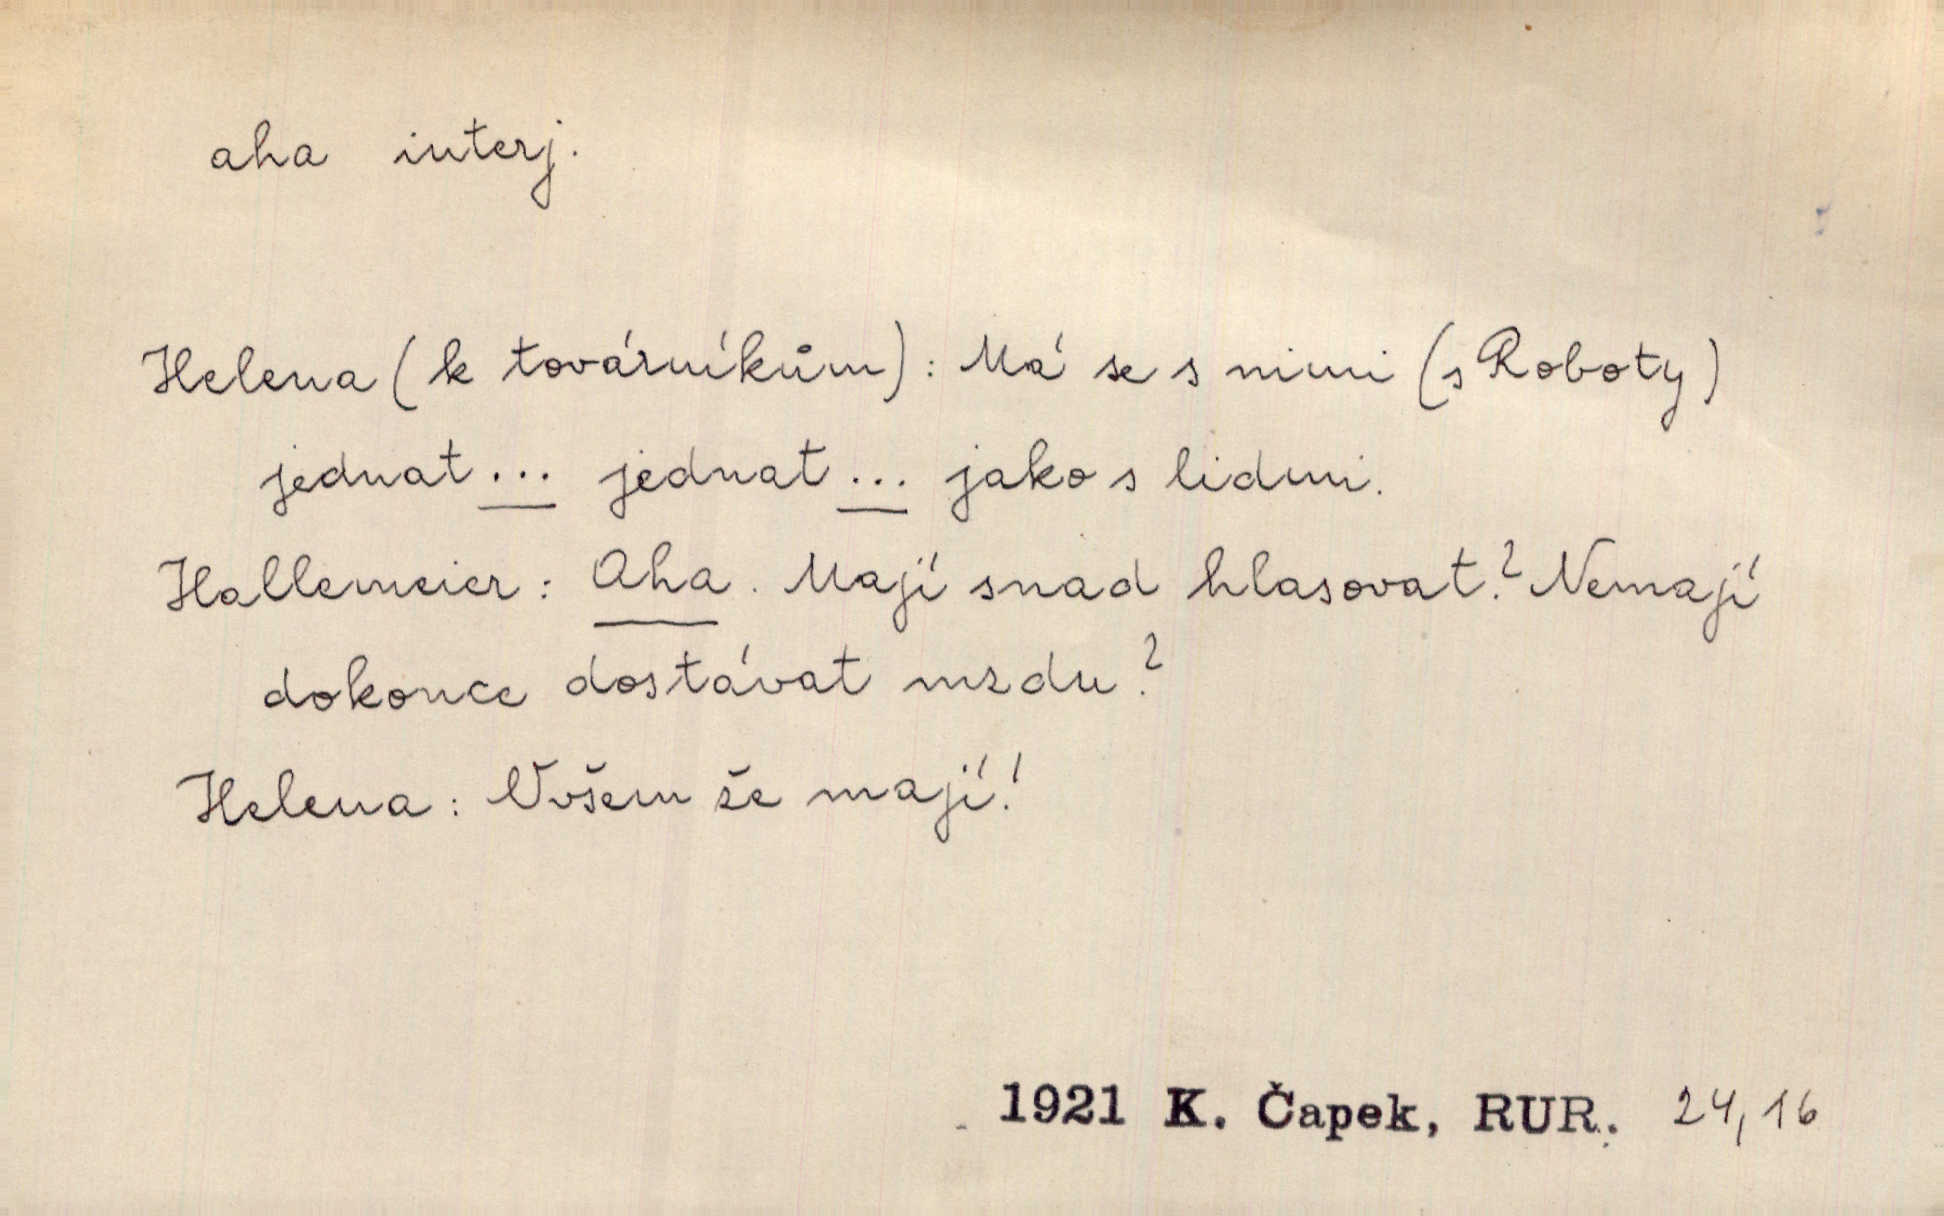 aha interj.
Helena (k továrníkům): Má se s nimi (s Roboty)
jednat ... jednat ... jako s lidmi.
Hallemeier: Aha. Mají snad hlasovat? Nemají
dokonce dostávat mzdu?
Helena: Ovšem že mají!
1921 K. Čapek, RUR. 24,16